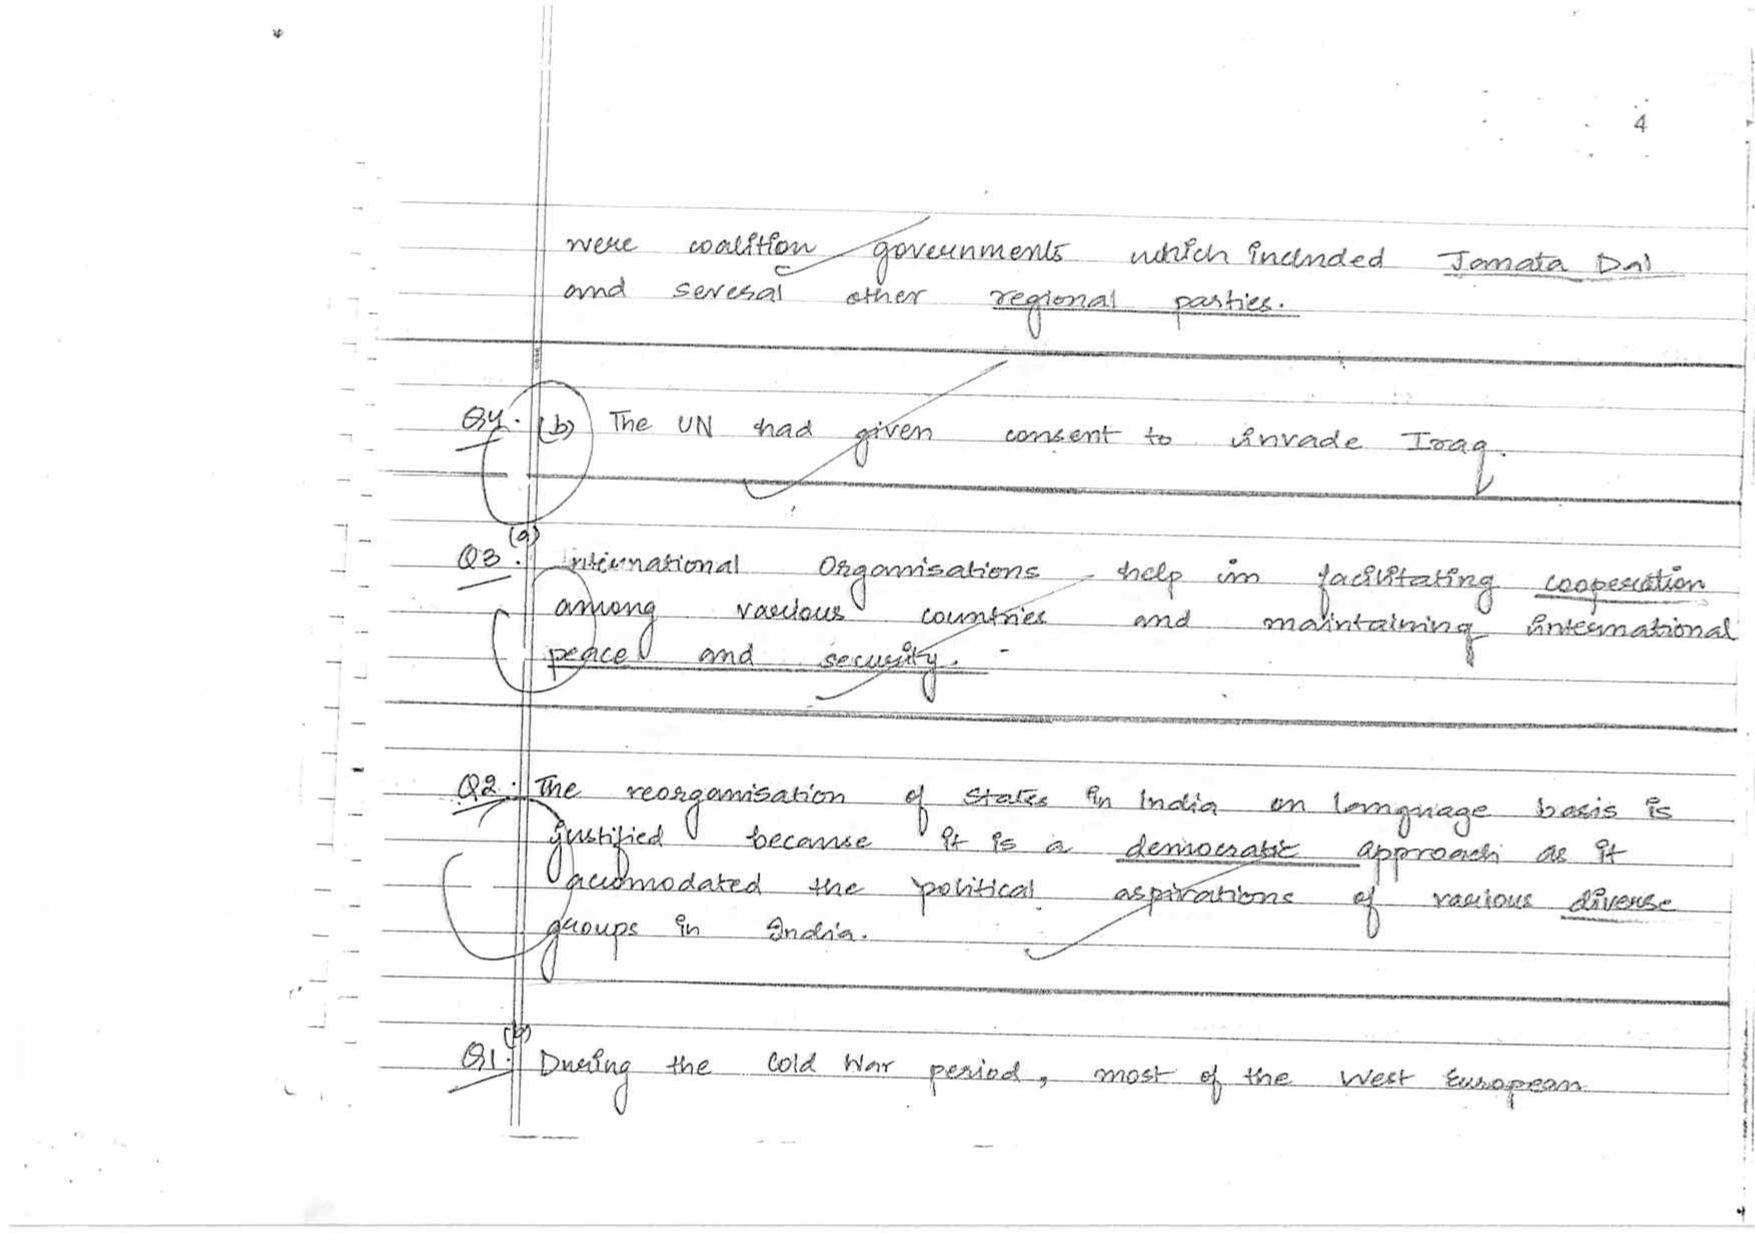 4
were coalition governments which included Janata Dal
and several other regional parties.
Q4. (b) The UN had given consent to invade Iraq.
(a)
Q3. International Organisations help in facilitating cooperation
among various countries and maintaining international
peace and security.
Q2. The reorganisation of states in India on language basis is
justified because it is a democratic approach as it
accomodated the political aspirations of various diverse
groups in India.
(b)
Q1. During the Cold War period, most of the West European